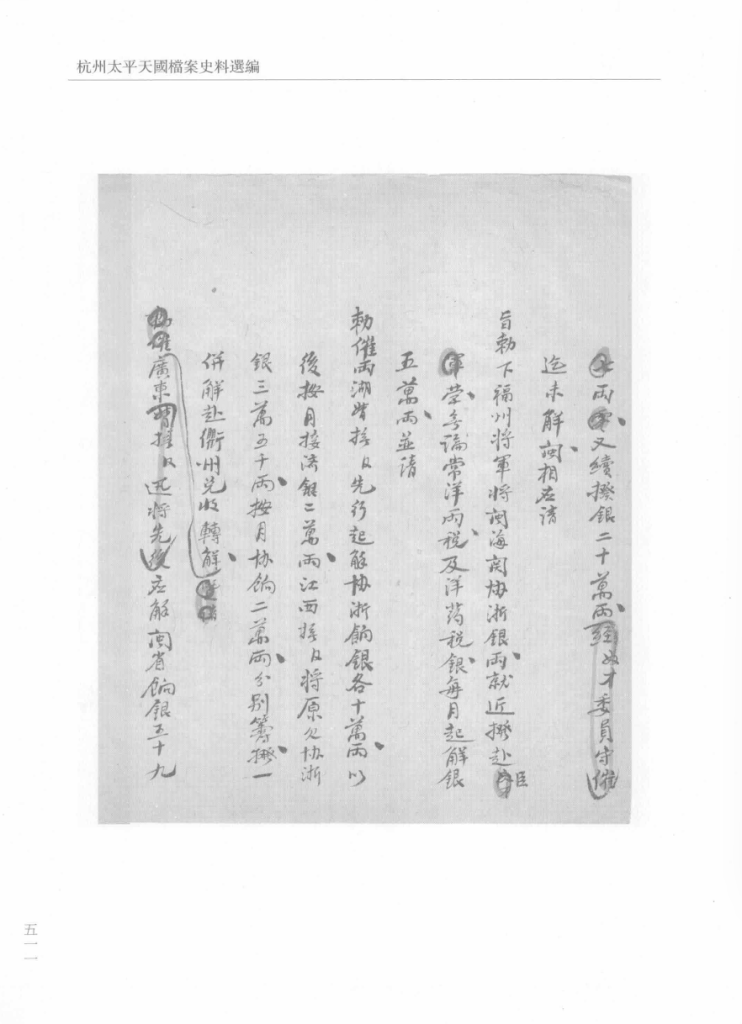 杭州太平天國檔案史料選編
兩又續撥銀二十萬兩經奴才委員守催
迄未解閩相应請
旨勅下福州将軍将閩海関協浙銀兩就近撥赴臣
軍营無論常洋兩税及洋药税銀每月起解銀
五萬兩並請
勅催兩湖督撫臣先行起解協浙餉銀各十萬兩以
後按月接济銀二萬兩江西撫臣将原欠協浙
銀三萬五千兩按月协餉二萬兩分别籌撥一
併解赴衢州兑收轉解
廣東督撫臣迅将先後应解閩省餉銀五十九
五一一